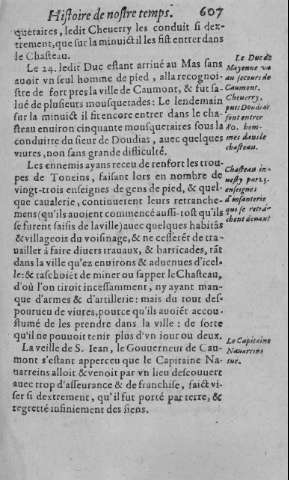 Histoire de nostre temps. 607
queraires, ledit Cheuerry les conduit si dex-
trement, que sur la minuict il les fist entrer dans
le Chasteau.
Le 24. ledit Duc estant arriué au Mas sans
auoir vn seul homme de pied, alla recognoi-
stre de fort pres la ville de Caumont, & fut sa-
lué de plusieurs mousquetades: Le lendemain
sur la minuict il fit encore entrer dans le cha-
steau enuiron cinquante mousqueraires sous la
conduitte du sieur de Doudias, auec quelques
viures, non sans grande difficulté.
Le Duc de
Mayenne va
au secours de
Caumont.
Cheuerry,
puis Doudias
font entrer
80. hom-
mes dans le
chasteau.
Les ennemis ayans receu de renfort les trou-
pes de Toneins, faisant lors en nombre de
vingt-trois enseignes de gens de pied, & quel-
que caualerie, continuerent leurs retranche-
mens (qu'ils auoient commencé aussi-tost qu'ils
se furent saisis de la ville) auec quelques habitãs
& villageois du voisinage, & ne cesserẽt de tra-
uailler à faire diuers trauaux, & barricades, tãt
dans la ville qu'ez enuirons & aduenues d'icel-
le: & taschoiẽt de miner ou sapper le Chasteau,
d'où l'on tiroit incessamment, ny ayant man-
que d'armes & d'artilerie: mais du tout des-
pourueu de viures, pource qu'ils auoiẽt accou-
stumé de les prendre dans la ville: de sorte
qu'il ne pouuoit tenir plus d'vn iour ou deux.
Chasteau in-
uesty par 23.
enseignes
d'infanterie
qui se retrã-
chent deuant
La veille de S. Iean, le Gouuerneur de Cau-
mont s'estant apperceu que le Capitaine Na-
uarreins alloit & venoit par vn lieu descouuert
auec trop d'asseurance & de franchise, faict vi-
ser si dextrement, qu'il fut porté par terre, &
regretté infiniement des siens.
Le Capitaine
Nauarreins
tué.